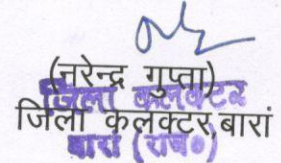 (नरेन्द्र गुप्ता)
जिला कलेक्टर
जिला कलेक्टर, बारां
बारां (राज०)